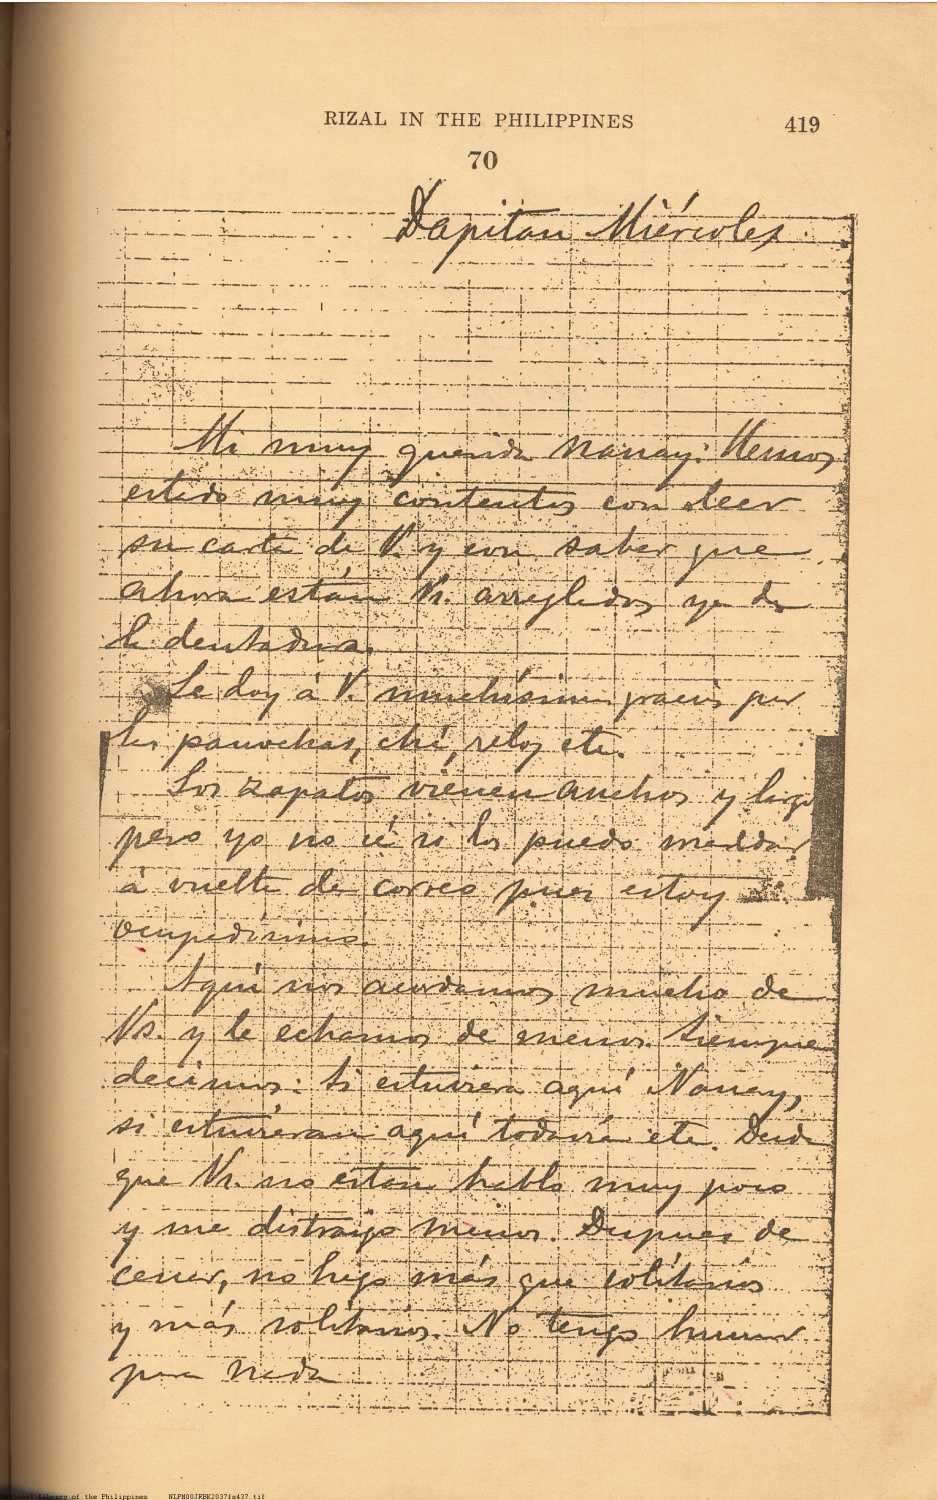 RIZAL IN THE PHILIPPINES 419
70
Dapitan Miércoles
Mi muy querida Nanay: Hemos
estado muy contentos con leer
su carta de V. y con saber que
ahora están Vs. arreglados ya de
la dentadura.
Le doy á V. muchísimas gracias por
las panochas, chá, reloj etc.
Los zapatos vienen anchos y largos
pero yo no sé si los puedo mandar
á vuelta de correo pues estoy
ocupadísimo.
Aquí nos acordamos mucho de
Vs. y le echamos de menos. Siempre
decimos: Si estuviera aquí Nanay,
si estuvieran aquí todavía etc. Desde
que Vs. no estan hablo muy poco
y me distraigo menos. Despues de
cenar, no hago más que solitarios
y más solitarios. No tengo humor
para nada
National Library of the Philippines NLPH00JRBK2037fa437.tif